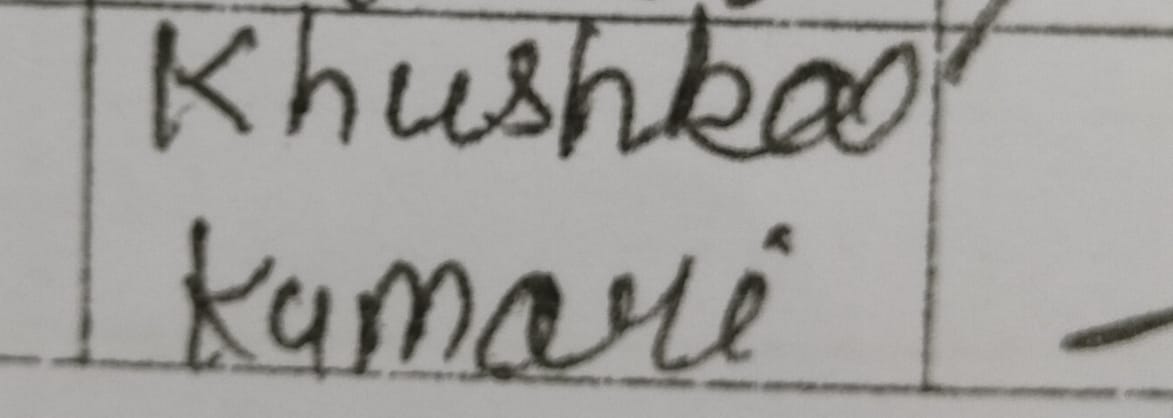 Khushboo
Kumari